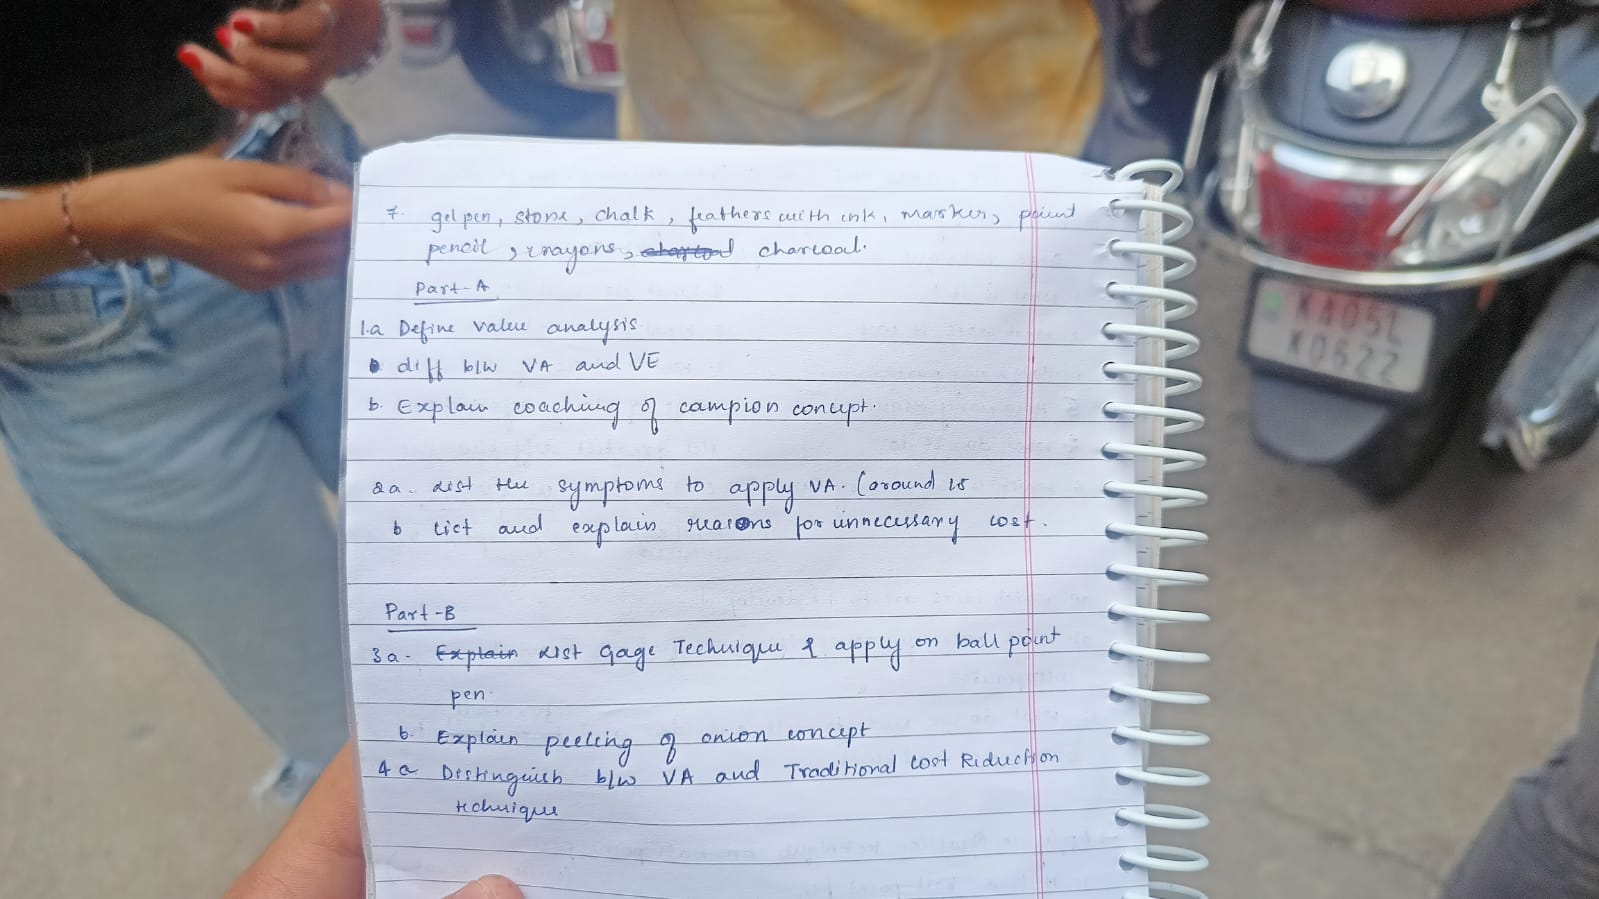 7. gel pen, stone, chalk, feathers with ink, marker, paint
pencil, crayons, charcoal.
Part-A
1.a Define Value analysis
diff b/w VA and VE
b. Explain coaching of campion concept.
2a. List the symptoms to apply VA. (around 15
b List and explain reasons for unnecessary cost.
Part-B
3a- Explain List Gage Technique & apply on ball point
pen.
b. Explain peeling of onion concept
4a Distinguish b/w VA and Traditional Cost Reduction
technique
KA05L
K0622